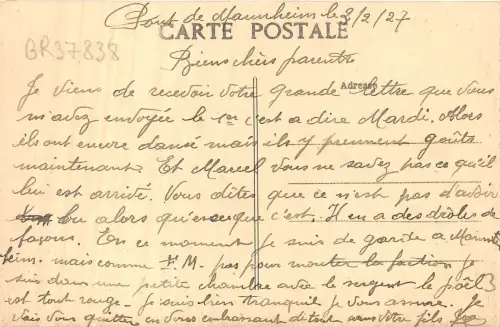 Pont de Mannheim le 3/2/27
CARTE POSTALE
BR37838
Biens chers parents
Adresse
Je viens de recevoir votre grande lettre que vous
m'avez envoyée le 1er c'est a dire Mardi. Alors
ils ont encore dansé mais ils y prennent goûts
maintenant. Et Marcel vous ne savez pas ce qu'il
lui est arrivé. Vous dites que ce n'est pas d'avoir
bu alors qu'est ce que c'est. Il en a des drôles de
façons. En ce moment je suis de garde a Mannh
heim. mais comme F. M. pas pour monter la faction je
suis dans une petite chambre avec le sergent le poêl
est tout rouge. Je suis bien tranquil je vous assure. Je
vais vous quitter en vous embrassant de tout votre fils